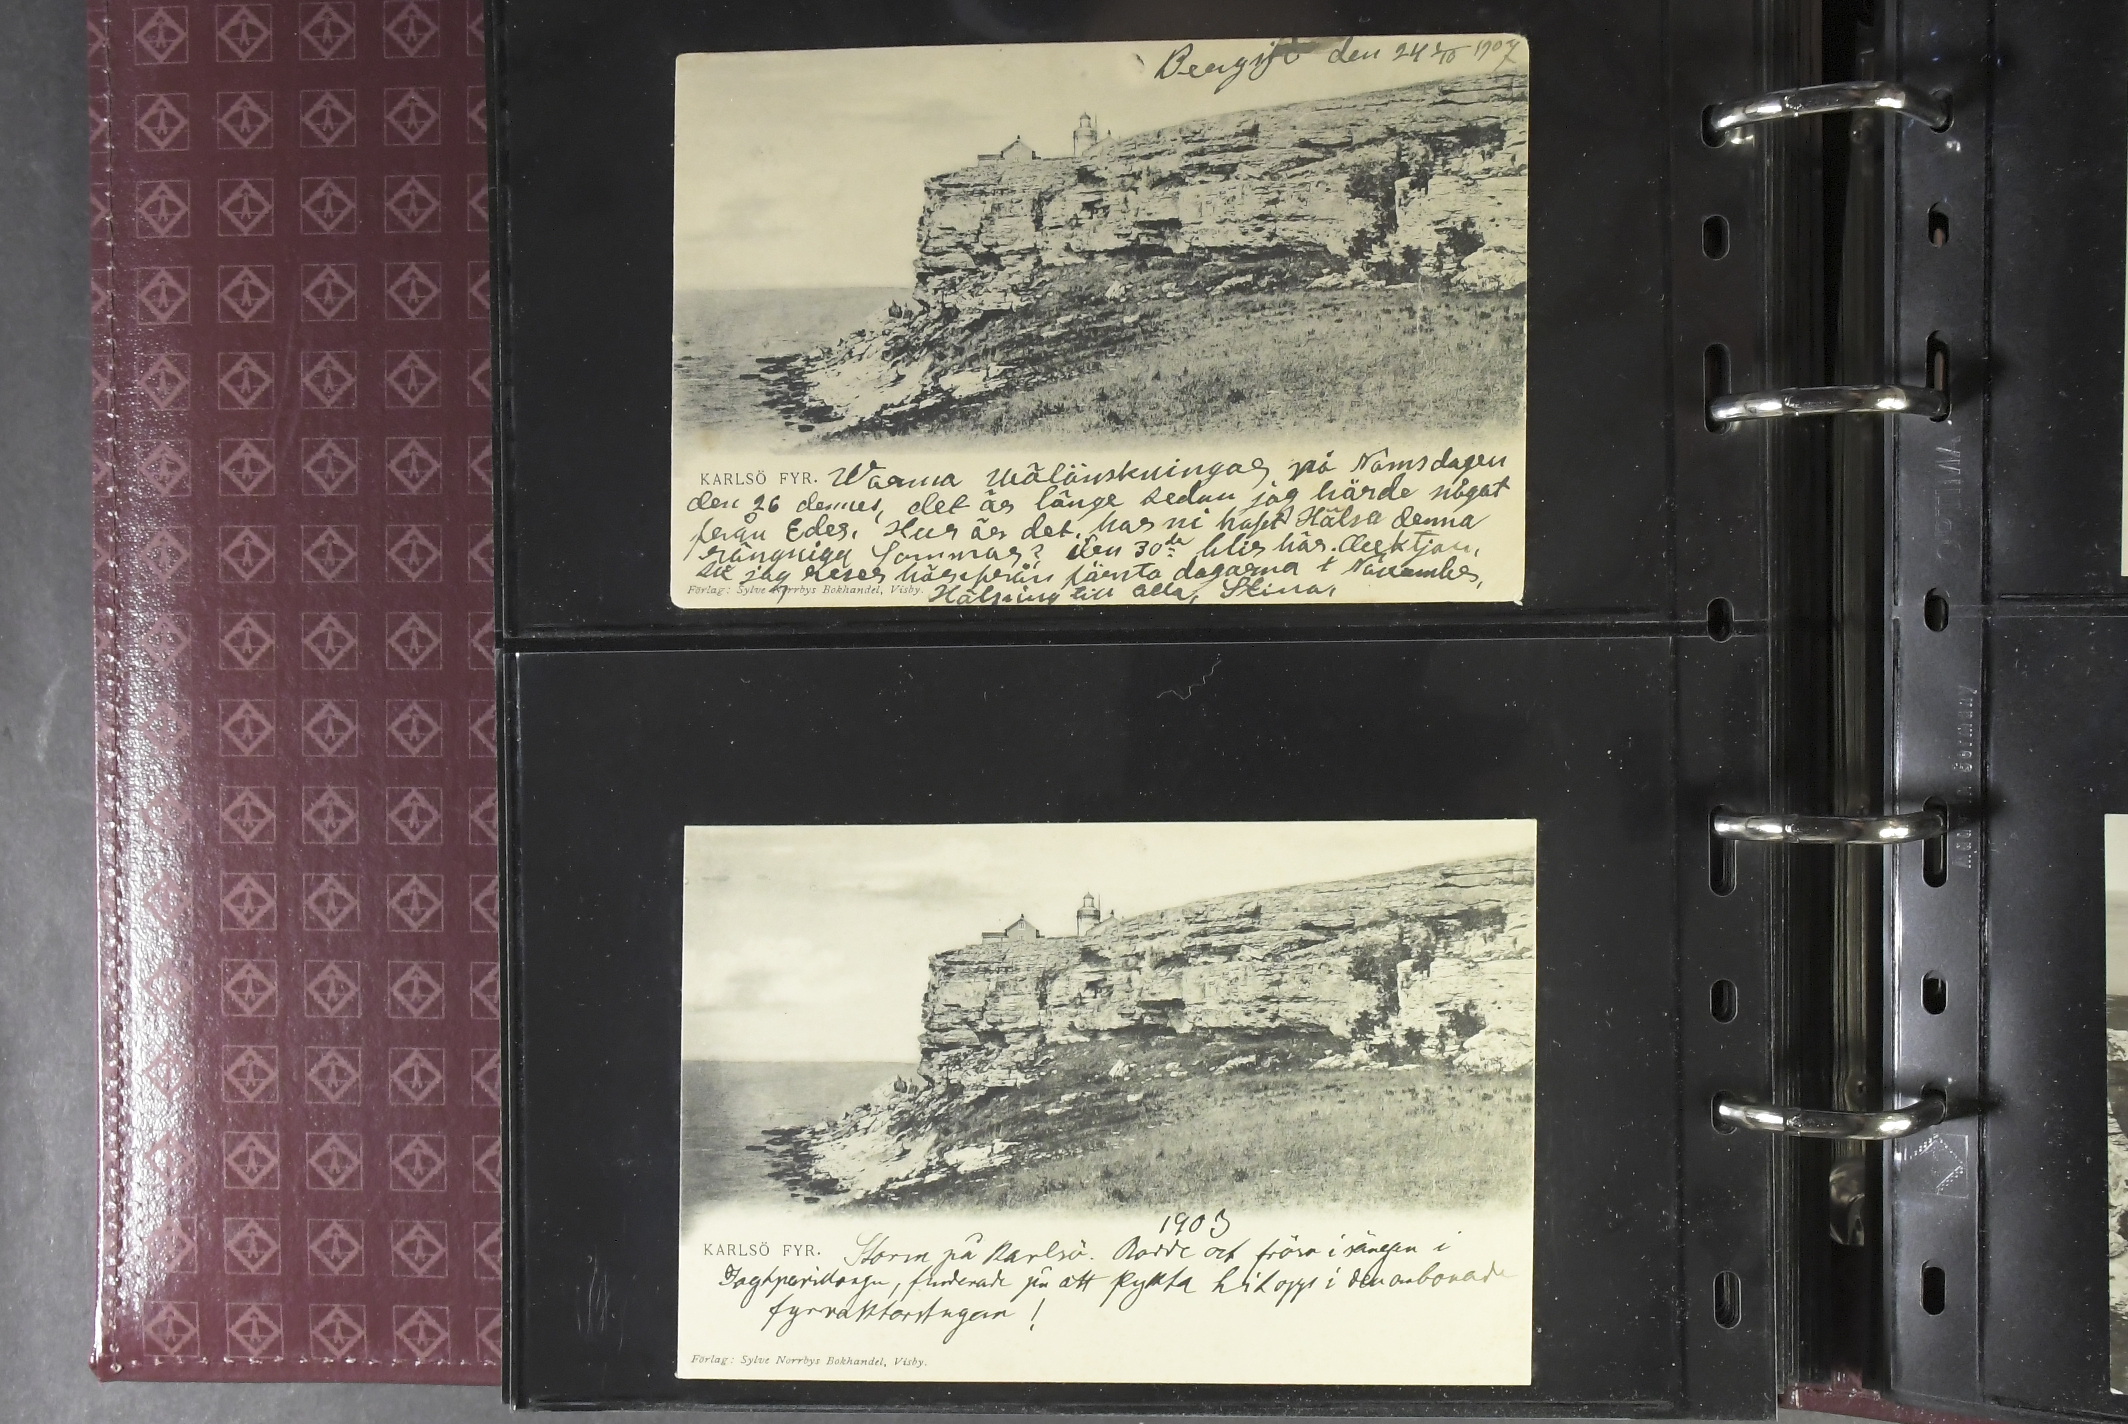 Bergsjö den 24/10 1907
KARLSÖ FYR. Warma välönskningar på Namsdagen
den 26 dennes, det är länge sedan jag hörde något
från Eder. Hur är det, har ni haft Hälsa denna
rängnigа Sommar? den 30de blir här Auktjon,
så jag reser härifrån första dagarna i November,
Förlag: Sylve Norrbys Bokhandel, Visby. Hälsning till alla, Stina,
1903
KARLSÖ FYR. Storm på Karlsö. Rodde och fröso i sängen i
Jagtpaviljongen, funderade på att flytta hit opp i den obebonade
fyrvaktarstugan!
Förlag: Sylve Norrbys Bokhandel, Visby.